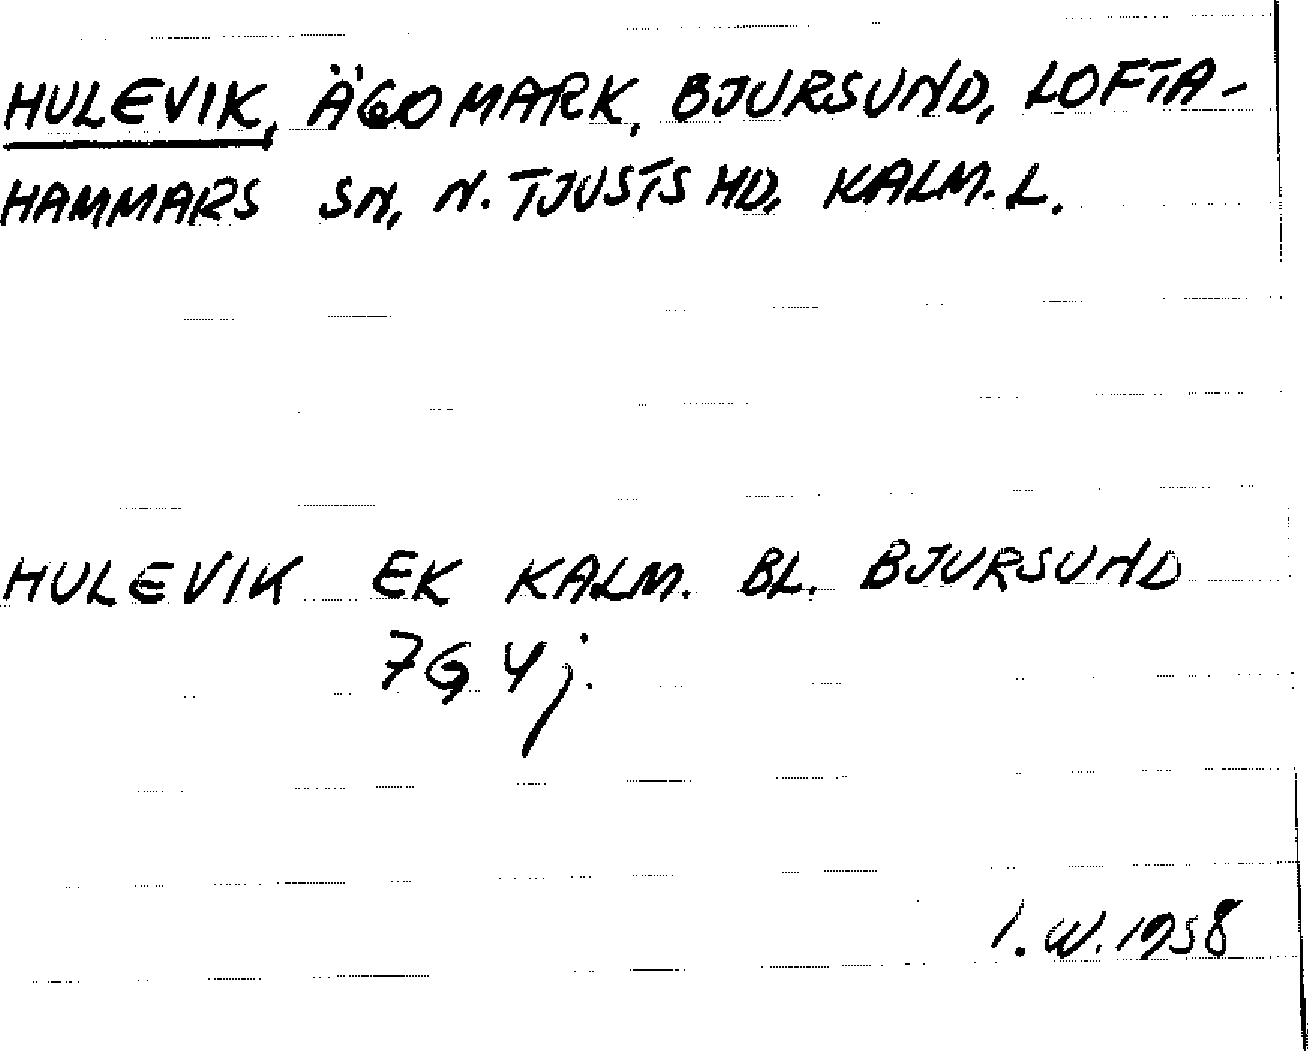 HULEVIK, ÄGOMARK, BJURSUND, LOFTA-
HAMMARS SN, N. TJUSTS HD, KALM. L.
HULEVIK EK KALM. BL. BJURSUND
7G 4j.
I. W. 1958